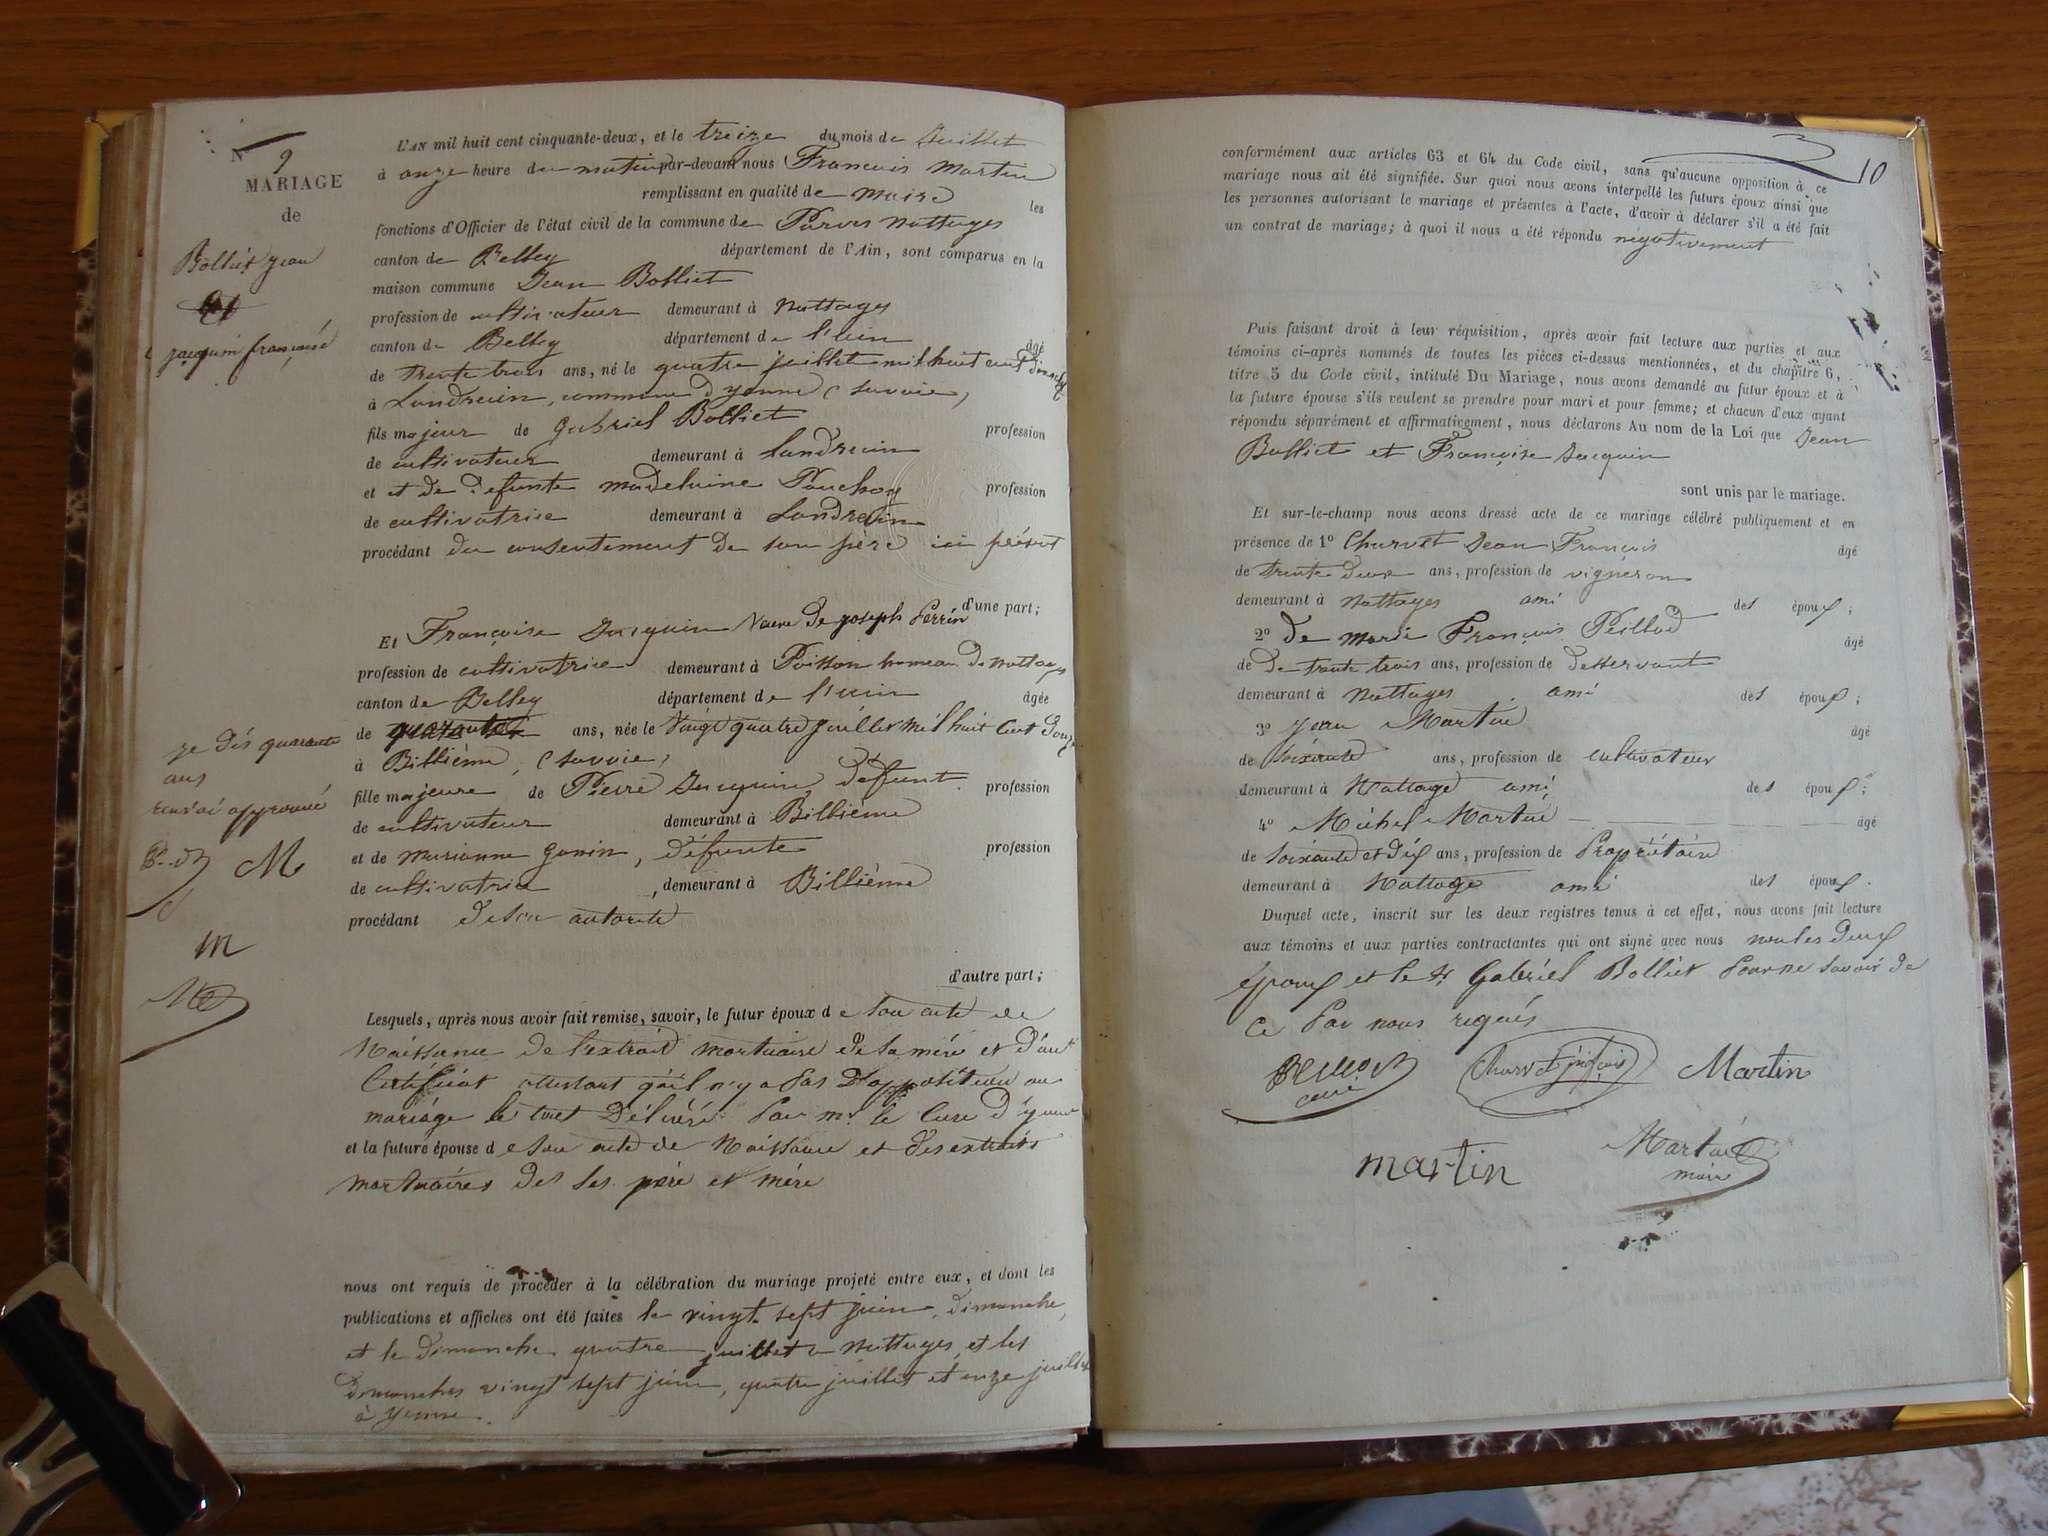 N 9
MARIAGE
de
Bolliet jean
et
jacquin françoise
L'AN mil huit cent cinquante-deux, et le treize du mois de Juillet
à onze heure du matin par-devant nous François Martin
remplissant en qualité de maire les
fonctions d'Officier de l'état civil de la commune de Parves Nattages
canton de Belley département de l'Ain, sont comparus en la
maison commune Jean Bolliet
profession de cultivateur demeurant à Nattages
canton de Belley département de l'ain âgé
de trente trois ans, né le quatre juillet mil huit cent dix neuf
à Landrecin, commune d'yenne (savoie)
fils majeur de Gabriel Bolliet profession
de cultivateur demeurant à Landrecin
et et de défunte madelaine Pauchon profession
de cultivatrice demeurant à Landrecin
procédant du consentement de son père ici présent
d'une part;
Et Françoise Jacquin Veuve de joseph Perrin
profession de cultivatrice demeurant à Poisson hameau de nattages
canton de Belley département de l'ain âgée
de ans, née le Vingt quatre juillet mil huit Cent douze
je dis quarante
ans
renvoi approuvé
M
m
à Billième, (savoie)
fille majeure de Pierre Jacquin, défunt profession
de cultivateur demeurant à Billième
et de marianne Gonin, défunte profession
de cultivatrice, demeurant à Billième
procédant de son autorité
d'autre part;
Lesquels, après nous avoir fait remise, savoir, le futur époux de son acte de
Naissance de l'extrait mortuaire de sa mère et d'un
Certificat attestant qu'il n'y a Pas D'opposition au
mariage le tout Délivré Par mr. le Cure d'yenne
et la future épouse de son acte de Naissance et des extraits
mortuaires des ses père et mère
nous ont requis de procéder à la célébration du mariage projeté entre eux, et dont les
publications et affiches ont été faites le vingt sept juin, dimanche,
et le dimanche quatre juillet à Nattages, et les
dimanches vingt sept juin, quatre juillet et onze juillet
à Yenne.
10
conformément aux articles 63 et 64 du Code civil, sans qu'aucune opposition à ce
mariage nous ait été signifiée. Sur quoi nous avons interpellé les futurs époux ainsi que
les personnes autorisant le mariage et présentes à l'acte, d'avoir à déclarer s'il a été fait
un contrat de mariage; à quoi il nous a été répondu négativement
Puis faisant droit à leur réquisition, après avoir fait lecture aux parties et aux
témoins ci-après nommés de toutes les pièces ci-dessus mentionnées, et du chapitre 6,
titre 5 du Code civil, intitulé Du Mariage, nous avons demandé au futur époux et à
la future épouse s'ils veulent se prendre pour mari et pour femme; et chacun d'eux ayant
répondu séparément et affirmativement, nous déclarons Au nom de la Loi que Jean
Bolliet et Françoise Jacquin
sont unis par le mariage.
Et sur-le-champ nous avons dressé acte de ce mariage célébré publiquement et en
présence de 1º Charvet Jean François âgé
de trente deux ans, profession de vigneron
demeurant à Nattages ami des époux;
2º De François Peillod âgé
de De trente trois ans, profession de desservant
demeurant à Nattages ami des époux;
3º jean Martin âgé
de soixante ans, profession de cultivateur
demeurant à Nattage ami des époux;
4º Michel Martin âgé
de soixante et dix ans, profession de Propriétaire
demeurant à Nattage ami des époux.
Duquel acte, inscrit sur les deux registres tenus à cet effet, nous avons fait lecture
aux témoins et aux parties contractantes qui ont signé avec nous non les deux
époux et le sr Gabriel Bolliet Pour ne savoir de
ce Par nous requis
curé
Charvet jn fçois
Martin
martin
Martin
maire